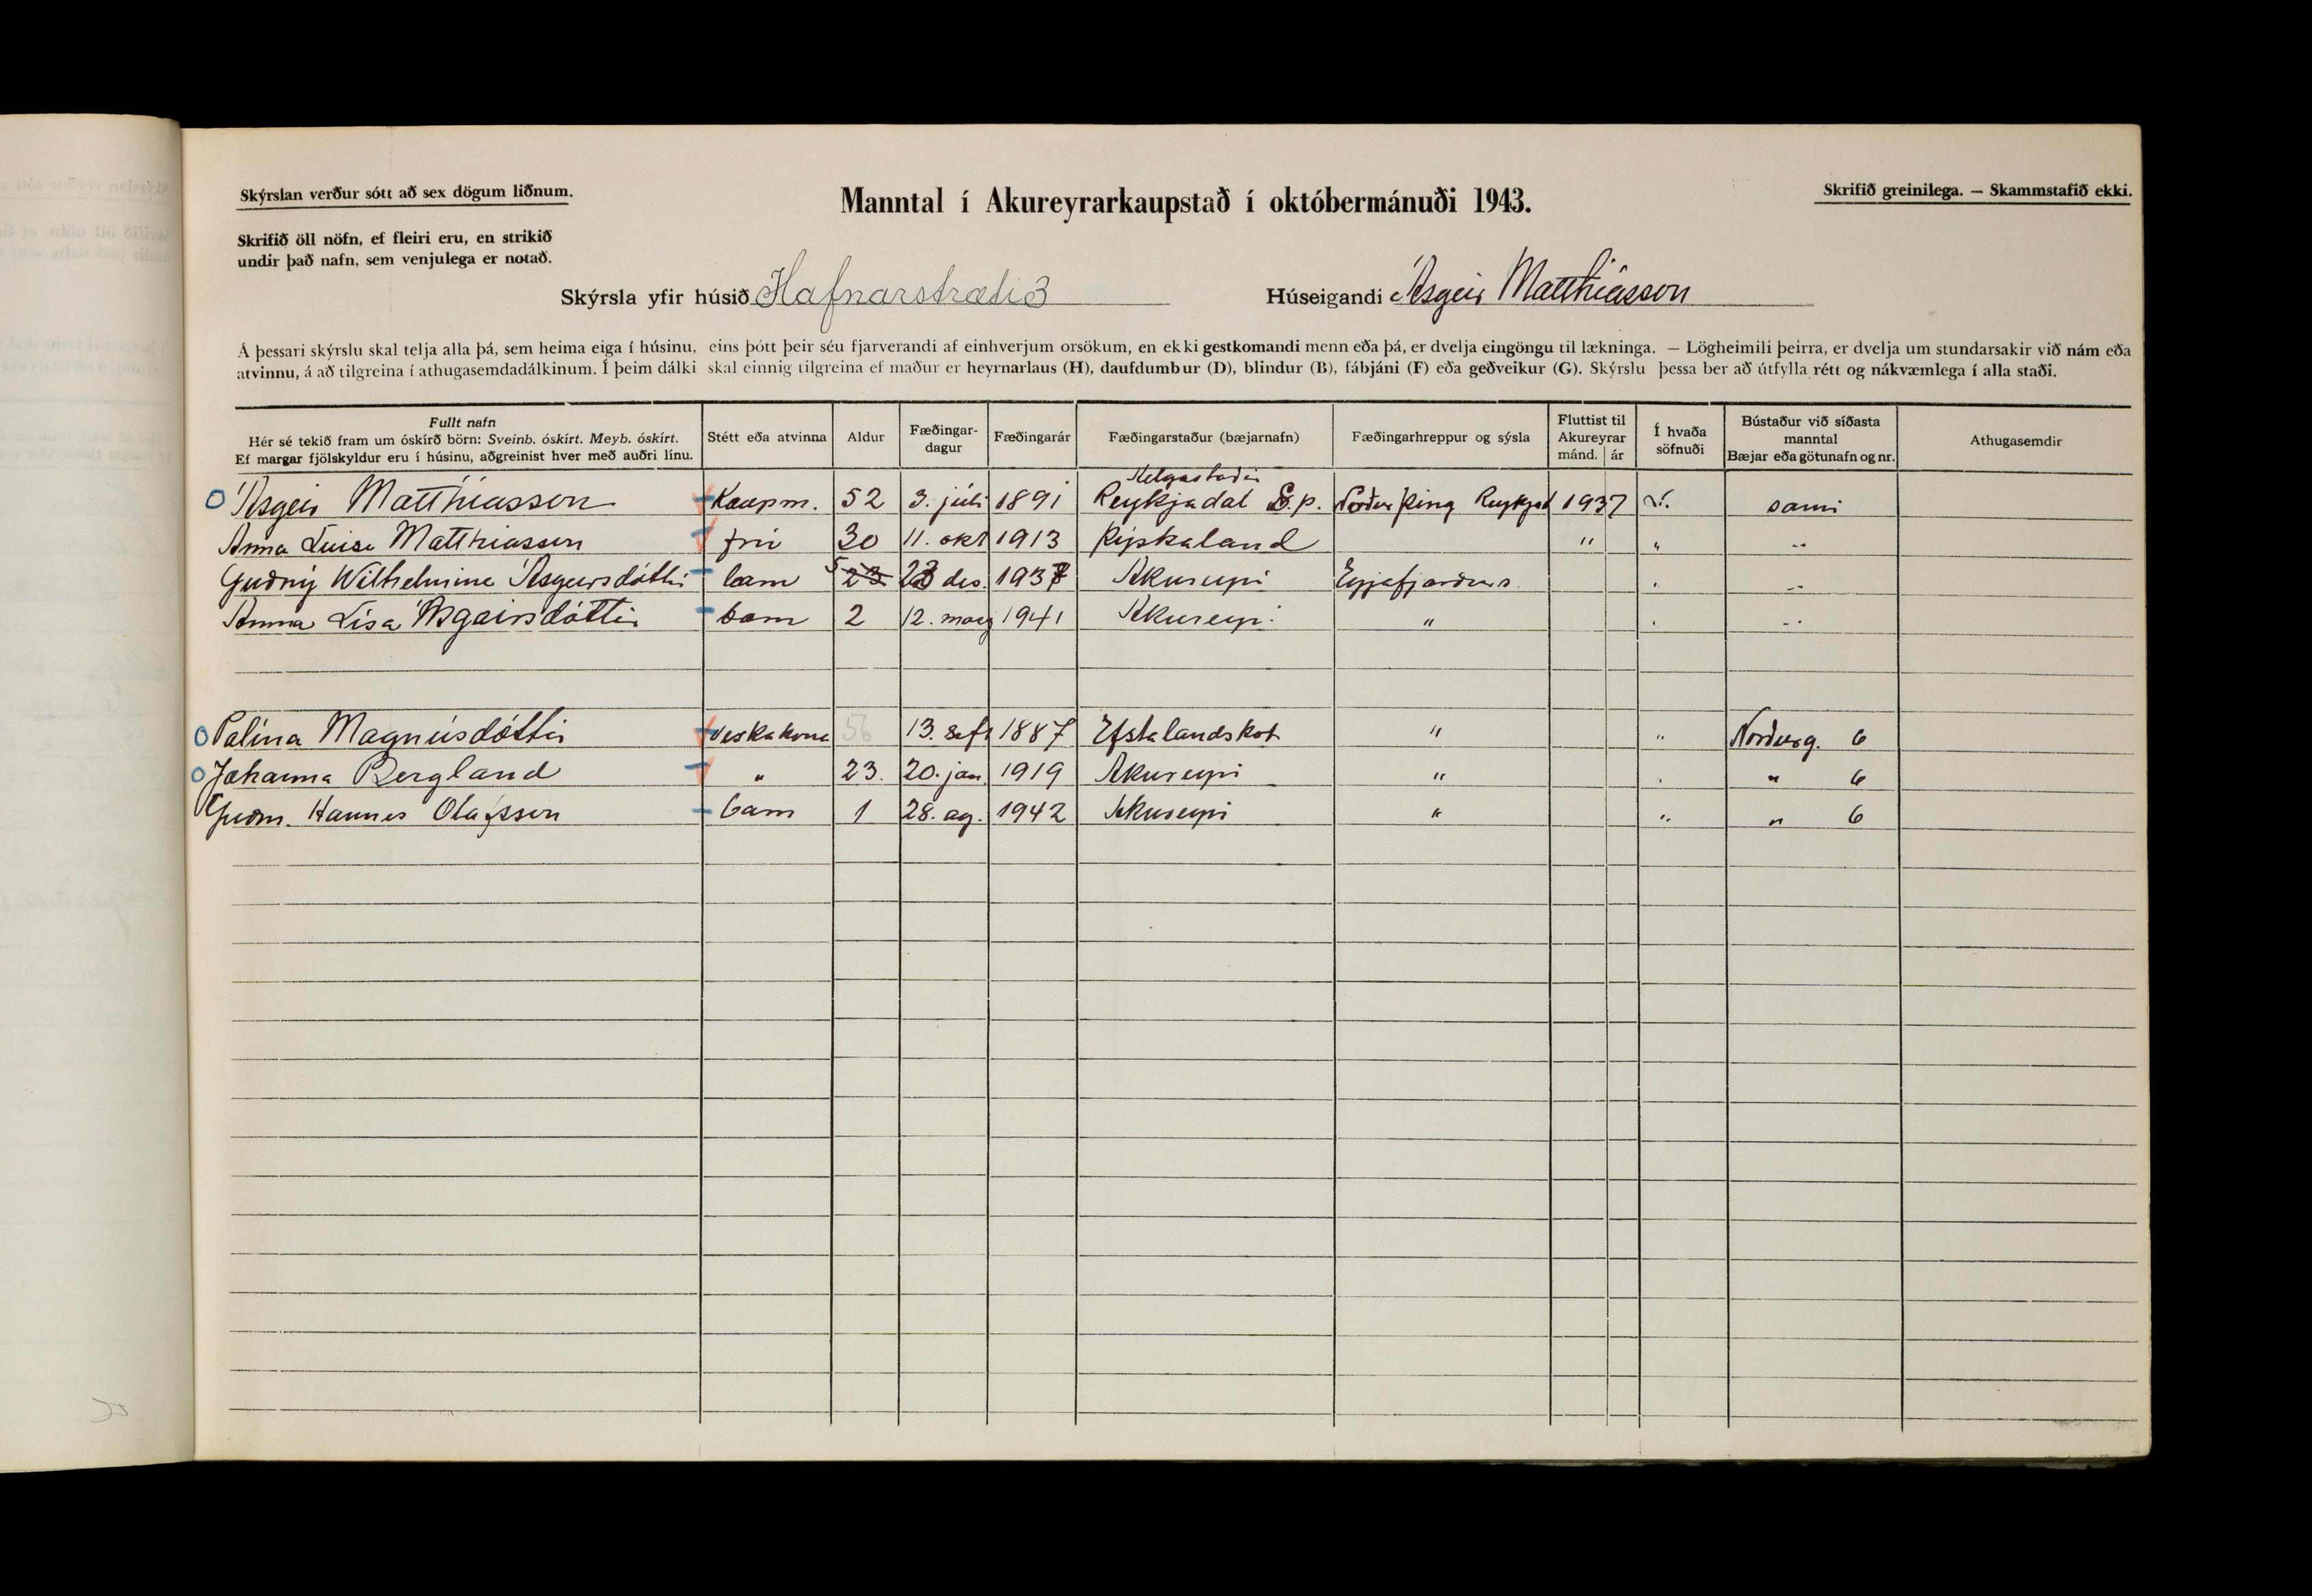 Skýrslan verður sótt að sex dögum liðnum.
Manntal í Akureyrarkaupstað í októbermánuði 1943.
Skrifið greinilega. — Skammstafið ekki.
Skrifið öll nöfn, ef fleiri eru, en strikið
undir það nafn, sem venjulega er notað.
Skýrsla yfir húsið Hafnarstræti 3 Húseigandi Ásgeir Matthíasson
Á þessari skýrslu skal telja alla þá, sem heima eiga í húsinu, eins þótt þeir séu fjarverandi af einhverjum orsökum, en ekki gestkomandi menn eða þá, er dvelja eingöngu til lækninga. — Lögheimili þeirra, er dvelja um stundarsakir við nám eða
atvinnu, á að tilgreina í athugasemdadálkinum. Í þeim dálki skal einnig tilgreina ef maður er heyrnarlaus (H), daufdumbur (D), blindur (B), fábjáni (F) eða geðveikur (G). Skýrslu þessa ber að útfylla rétt og nákvæmlega í alla staði.
Fullt nafn
Hér sé tekið fram um óskírð börn: Sveinb. óskírt. Meyb. óskírt.
Ef margar fjölskyldur eru í húsinu, aðgreinist hver með auðri línu.
Stétt eða atvinna
Aldur
Fæðingar-
dagur
Fæðingarár
Fæðingarstaður (bæjarnafn)
Fæðingarhreppur og sýsla
Fluttist til
Akureyrar
mánd. ár
Í hvaða
söfnuði
Bústaður við síðasta
manntal
Bæjar eða götunafn og nr.
Athugasemdir
Helgastaðir
Ásgeir Matthíasson Kaupm. 52 3. júli 1891 Reykjadal S.p. Norður Þing 1937 sami
Anna Luise Matthiasson frú 30 11. okt 1913 Þýskaland " " "
Guðný Wilhelmine Ásgeirsdóttir barn 5 23 23 des. 1937 Akureyri Eyjafjarðars. " "
Anna Lísa Ásgeirsdóttir barn 2 12. maí 1941 Akureyri " " "
Pálína Magnúsdóttir verkakona 56 13. sept 1887 Efstalandskot " " Norðurg. 6
Jóhanna Bergland " 23. 20. jan. 1919 Akureyri " " " 6
Guðm. Hannes Olafsson barn 1 28. ag. 1942 Akureyri " " " 6